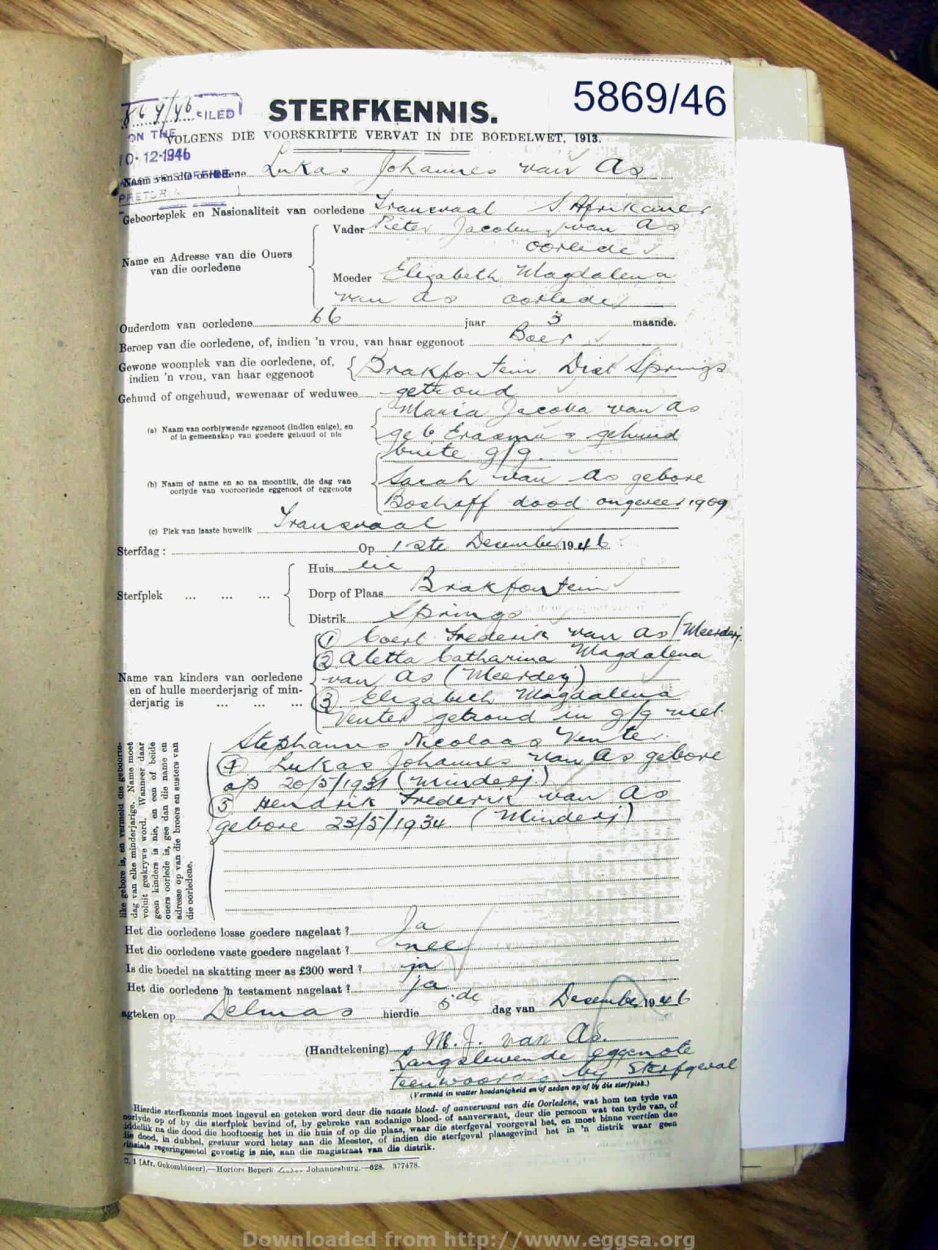 5869/46
FILED
ON THE
10-12-1946
STERFKENNIS.
VOLGENS DIE VOORSKRIFTE VERVAT IN DIE BOEDELWET, 1913.
Naam van die oorledene Lukas Johannes van As
Geboorteplek en Nasionaliteit van oorledene Transvaal S Afrikaner
Name en Adresse van die Ouers van die oorledene
Vader Pieter Jacobus van As
oorlede
Moeder Elizabeth Magdalena
van As oorlede
Ouderdom van oorledene 66 jaar 3 maande.
Beroep van die oorledene, of, indien 'n vrou, van haar eggenoot Boer
Gewone woonplek van die oorledene, of, indien 'n vrou, van haar eggenoot Brakfontein Dist Springs
Gehuud of ongehuud, wewenaar of weduwee getroud
(a) Naam van oorblywende eggenoot (indien enige), en of in gemeenskap van goedere gehuud of nie
Maria Jacoba van As
geb Erasmus gehuud
buite g/g.
(b) Naam of name en so na moontlik, die dag van oorlyde van vooroorlede eggenoot of eggenote
Sarah van As gebore
Boshoff dood ongeveer 1909
(c) Plek van laaste huwelik Transvaal
Sterfdag: Op 1ste Desember 1946
Sterfplek
Huis
Dorp of Plaas Brakfontein
Distrik Springs
Name van kinders van oorledene en of hulle meerderjarig of minderjarig is
(1) Coert Frederik van As (Meerderj.
(2) Aletta Catharina Magdalena
van As (Meerderj)
(3) Elizabeth Magdalena
Venter getroud in g/g met
Stephanus Nicolaas Venter.
(4) Lukas Johannes van As gebore
op 20/5/1931 (Minderj)
(5) Hendrik Frederik van As
gebore 23/5/1934 (Minderj)
like gebore is, en vermeld die geboorte-
dag van elke minderjarige. Name moet
voluit geskrywe word. Wanneer daar
geen kinders is nie, en een of beide
ouers oorlede is, gee dan die name en
adresse op van die broers en susters van
die oorledene.
Het die oorledene losse goedere nagelaat? Ja
Het die oorledene vaste goedere nagelaat? nee
Is die boedel na skatting meer as £300 werd? ja
Het die oorledene 'n testament nagelaat? ja
Geteken op Delmas hierdie 5de dag van Desember 1946
(Handtekening) M. J. van As.
Langslewende eggenote
teenwoordig by sterfgeval
(Vermeld in watter hoedanigheid en of aedan op of by die sterfplek.)
Hierdie sterfkennis moet ingevul en geteken word deur die naaste bloed- of aanverwant van die Oorledene, wat hom ten tyde van
oorlyde op of by die sterfplek bevind of, by gebreke van sodanige bloed- of aanverwant, deur die persoon wat ten tyde van, of
onmiddellik na die dood die hooftoesig het in die huis of op die plaas, waar die sterfgeval voorgeval het, en moet binne veertien dae
na die dood, in dubbel, gestuur word hetsy aan die Meester, of indien die sterfgeval plaasgevind het in 'n distrik waar geen
provinsiale regeringsetel gevestig is nie, aan die magistraat van die distrik.
D. 1 (Afr. Gekombineer).—Hortors Beperk Johannesburg.—628. 377478.
Downloaded from http://www.eggsa.org